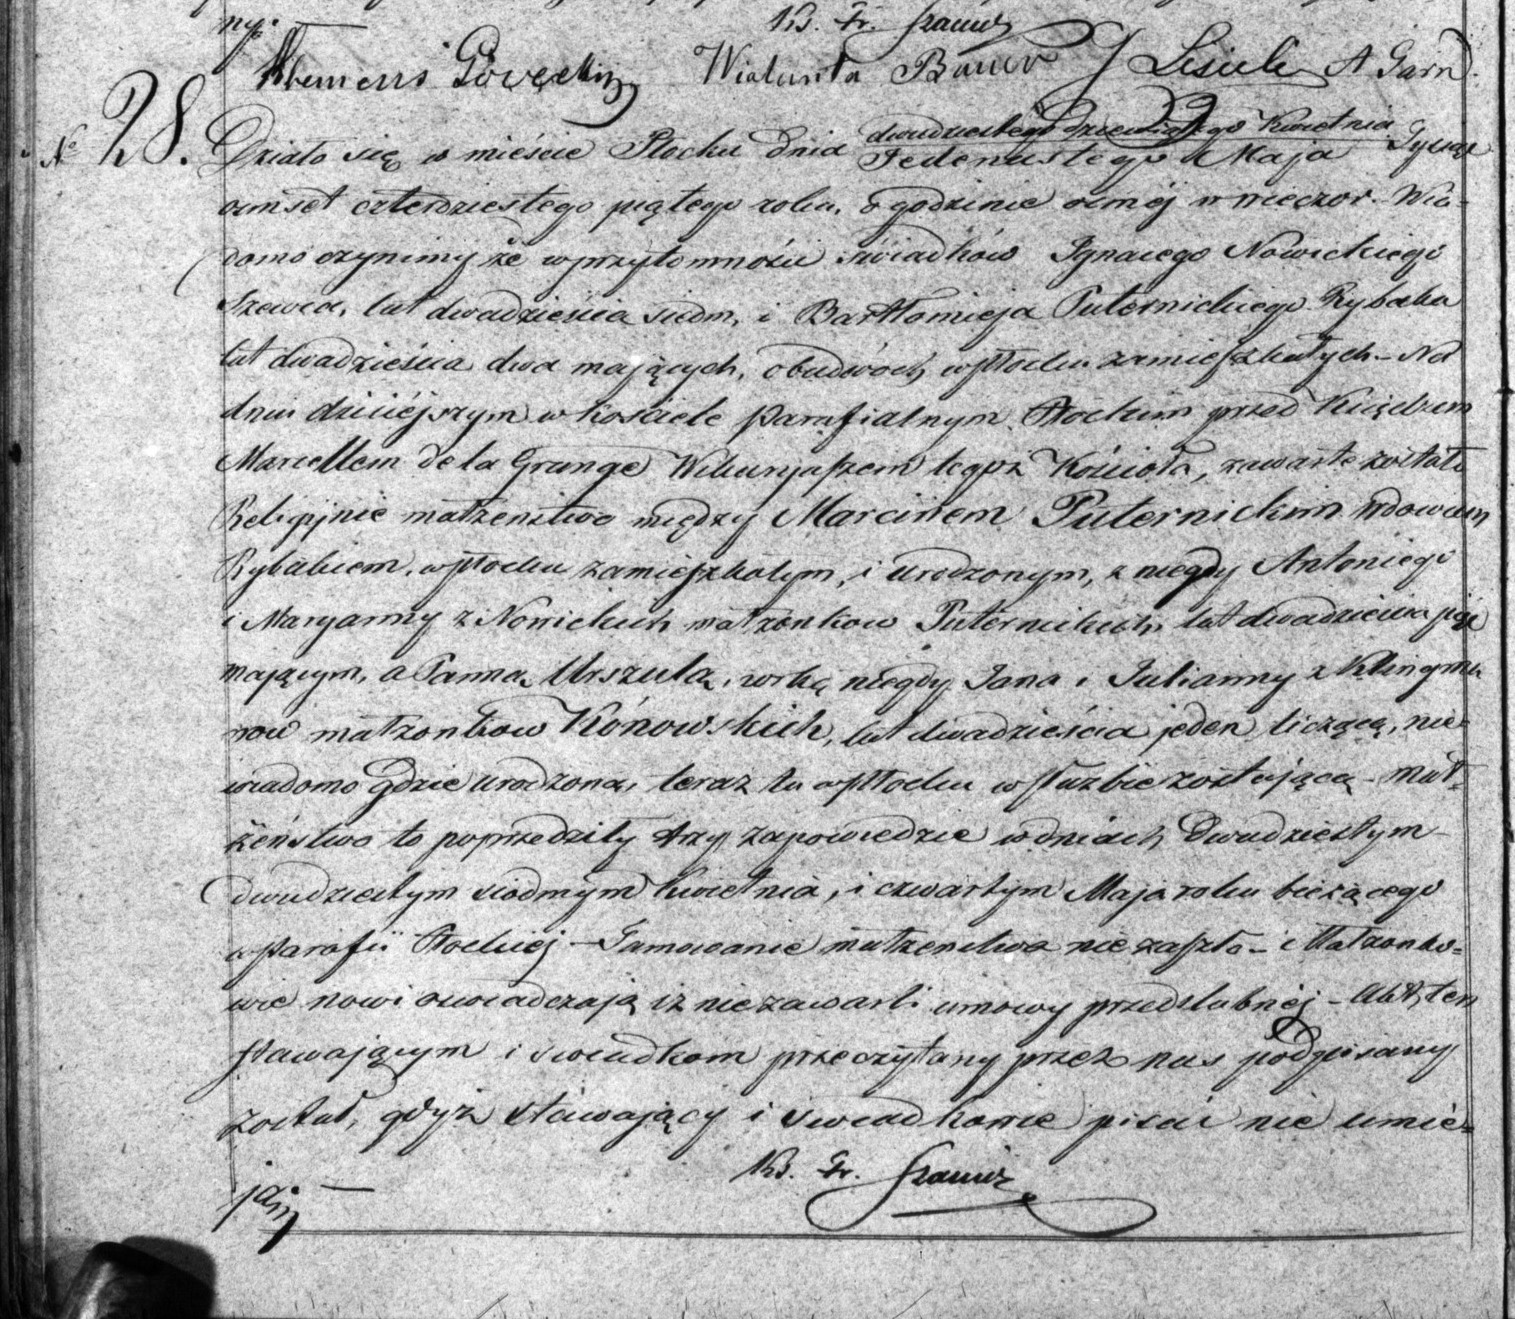 ny. —
Ks. Fr. Szawicz
Klemens Górecki Wiolanta Bauer J Lisicki A Garn.
№ 28.
dwudziestego dziewiątego Kwietnia
Działo się w mieście Płocku dnia Jedenastego Maja Tysiąc
ośmset czterdziestego piątego roku, o godzinie osmej w wieczor. Wia-
domo czynimy że w przytomności świadków Ignacego Nowickiego
Szewca, lat dwadzieścia siedm, i Bartłomieja Puternickiego Rybaka
lat dwadzieścia dwa mających, obudwóch w Płocku zamieszkałych – Na
dniu dzisiéjszym w kościele parafialnym Płockim przed Księdzem
Marcellem de la Grange Wikaryaszem tegoż Kościoła, zawarte zostało
Religijnie małżeństwo między Marcinem Puternickim Wdowcem
Rybakiem, w Płocku zamieszkałym, i urodzonym, z niegdy Antoniego
i Maryanny z Nowickich małżonkow Puternickich, lat dwadzieścia pięć
mającym, a Panną Urszulą, córką niegdy Jana i Julianny z Klingma
now małżonkow Kónowskich, lat dwadzieścia jeden liczącą, nie-
wiadomo gdzie urodzoną, teraz tu w Płocku w służbie zostającą – Mał-
żeństwo to poprzedziły trzy zapowiedzie w dniach Dwudziestym
dwudziestym siódmym Kwietnia, i czwartym Maja roku bieżącego
w Parafii Płockiéj – Tamowanie małżeństwa nie zaszło – Małżonko-
wie nowi oświadczają iż nie zawarli umowy przedślubnéj – Akt ten
stawającym i świadkom przeczytany przez nas podpisany
został, gdyż stawający i świadkowie pisać nie umie-
ją. —
Ks. Fr. Szawicz